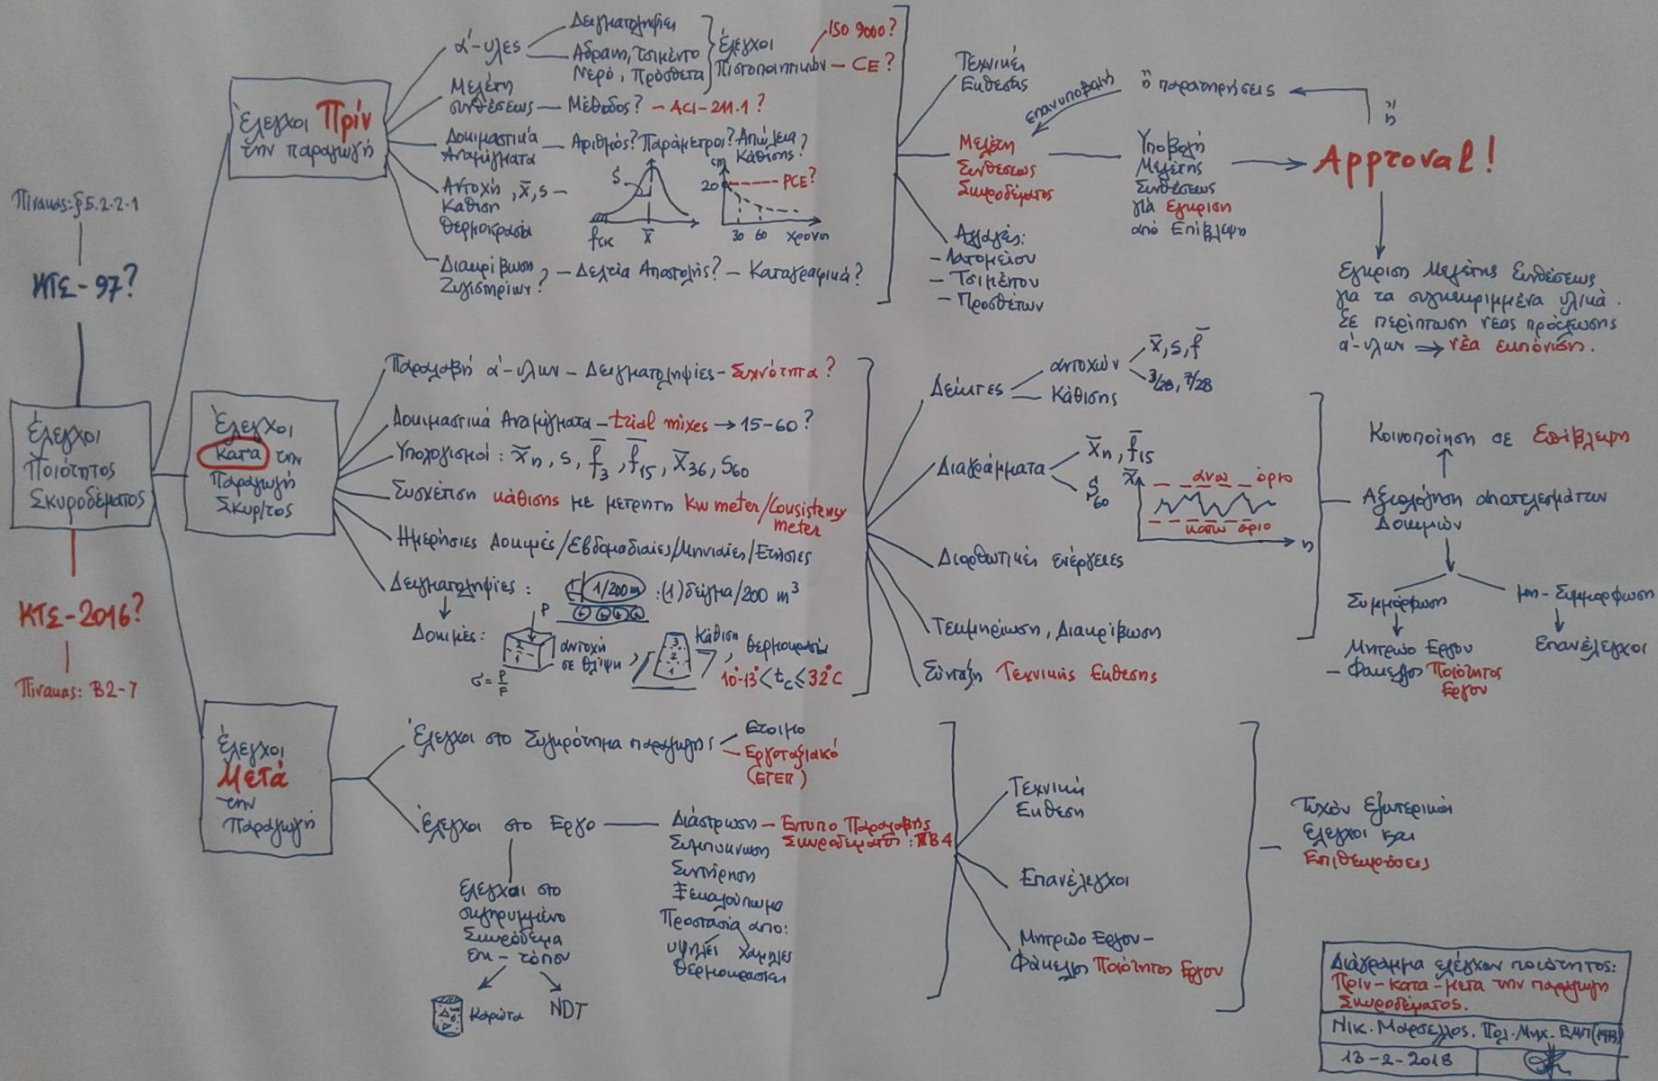 Πίνακας: §5.2.2.1
ΚΤΣ-97?
Έλεγχοι
Ποιότητος
Σκυροδέματος
ΚΤΣ-2016?
Πίνακας: Β2-7
Έλεγχοι Πρίν
την παραγωγή
α'-υλες
Δειγματοληψίες
Αδρανή, τσιμέντο
Νερό, Πρόσθετα
Έλεγχοι
Πιστοποιητικών - CE?
ISO 9000?
Μελέτη
συνθέσεως - Μέθοδος? - ACI-211.1?
Δοκιμαστικά
Αναμίγματα - Αριθμός? Παράμετροι? Απώλεια
Κάθισης?
Αντοχή, x̄, s -
Κάθιση
Θερμοκρασία
S
fck
x̄
cm
20
PCE?
30 60 χρόνος
Διακρίβωση
Ζυγιστηρίων? - Δελτία Αποστολής? - Καταγραφικά?
Τεχνικές
Εκθέσεις
Μελέτη
Συνθέσεως
Σκυροδέματος
Αλλαγές:
- Λατομείου
- Τσιμέντου
- Προσθέτων
επανυποβολή
ή παρατηρήσεις
ή
Υποβολή
Μελέτης
Συνθέσεως
για έγκριση
από Επίβλεψη
Approval!
Έγκριση Μελέτης Συνθέσεως
για τα συγκεκριμμένα υλικά.
Σε περίπτωση νέας πρόσμιξης
α'-υλων ⇒ νέα εκπόνιση.
Έλεγχοι
κατα την
Παραγωγή
Σκυρ/τος
Παραλαβή α'-υλων - Δειγματοληψίες - Συχνότητα?
Δοκιμαστικά Αναμίγματα - trial mixes → 15-60?
Υπολογισμοί: x̄n, s, f̄3, f̄15, x̄36, S60
Συσχέτιση κάθισης με μετρητή kw meter/Consistency
meter
Ημερήσιες Δοκιμές/Εβδομαδιαίες/Μηνιαίες/Ετήσιες
Δειγματοληψίες: 1/200 m³ : (1) δείγμα/200 m³
Δοκιμές:
P
αντοχή
σε θλίψη,
σ=P/F
3
2
1
Κάθιση
, θερμοκρασία
10-13° < tc ≤ 32°C
Δείκτες
αντοχών
x̄, s, f̄
3/28, 7/28
Κάθισης
Διαγράμματα
x̄n, f̄15
S60
x̄
άνω όριο
κάτω όριο
n
Διορθωτικές ενέργειες
Τεκμηρίωση, Διακρίβωση
Σύνταξη Τεχνικής Εκθεσης
Κοινοποίηση σε Επίβλεψη
Αξιολόγηση αποτελεσμάτων
Δοκιμών
Συμμόρφωση
μη-Συμμορφωση
Μητρώο Εργου
- Φάκελλος Ποιότητος
Εργου
Επανέλεγχοι
Έλεγχοι
Μετά
την
Παραγωγή
Έλεγχοι στο Συγκρότημα παραγωγής
Ετοιμο
Εργοταξιακό
(ΕΤΕΠ)
Έλεγχοι στο Εργο
Διάστρωση - Εντυπο Παραλαβής
Σκυροδέματος: ΠΒ4
Συμπυκνωση
Συντήρηση
Ξεκαλούπωμα
Προστασία απο:
υψηλές χαμηλες
θερμοκρασίες
Ελεγχοι στο
σκληρυμμένο
Σκυρόδεμα
επι-τόπου
Καρώτα
NDT
Τεχνική
Εκθεση
Επανέλεγχοι
Μητρώο Εργου-
Φάκελος Ποιότητος Εργου
Τυχόν Εξωτερικοί
Ελεγχοι και
Επιθεωρήσεις
Διάγραμμα ελέγχων ποιότητος:
Πριν-κατα-μετα την παραγωγή
Σκυροδέματος.
Νικ. Μαρσέλλος. Πολ. Μηχ. ΕΜΠ
13-2-2018